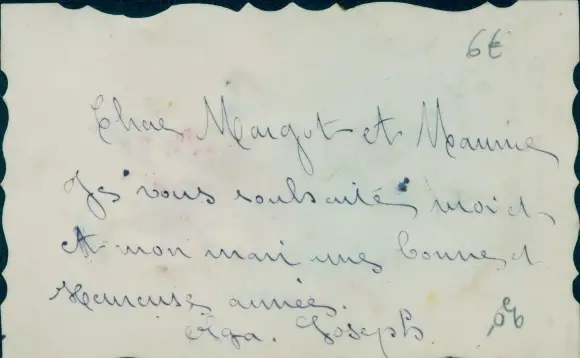 6€
Cher Margot et Maurice
Je vous souhaite moi et
et mon mari une bonne et
heureuse année.
Olga. Joseph